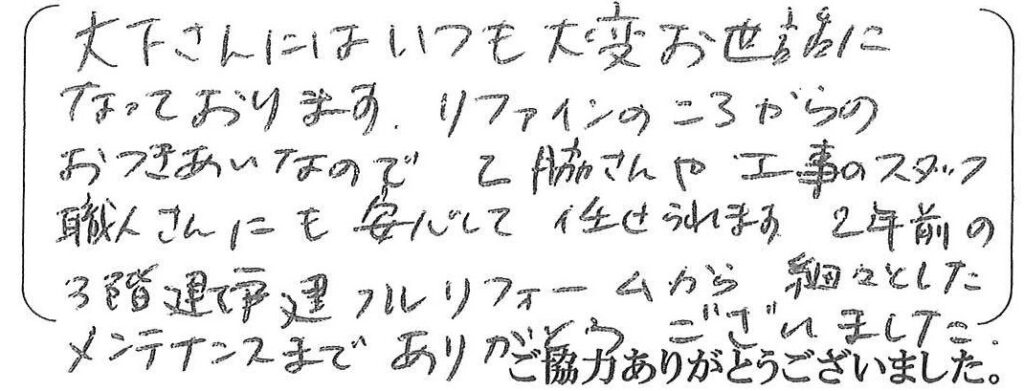 大下さんにはいつも大変お世話に
なっております。リファインのころからの
おつきあいなので 乙脇さんや 工事のスタッフ
職人さんにも 安心して 任せられます 2年前の
3階建戸建フルリフォームから 細々とした
メンテナンスまで ありがとうございました。
ご協力ありがとうございました。